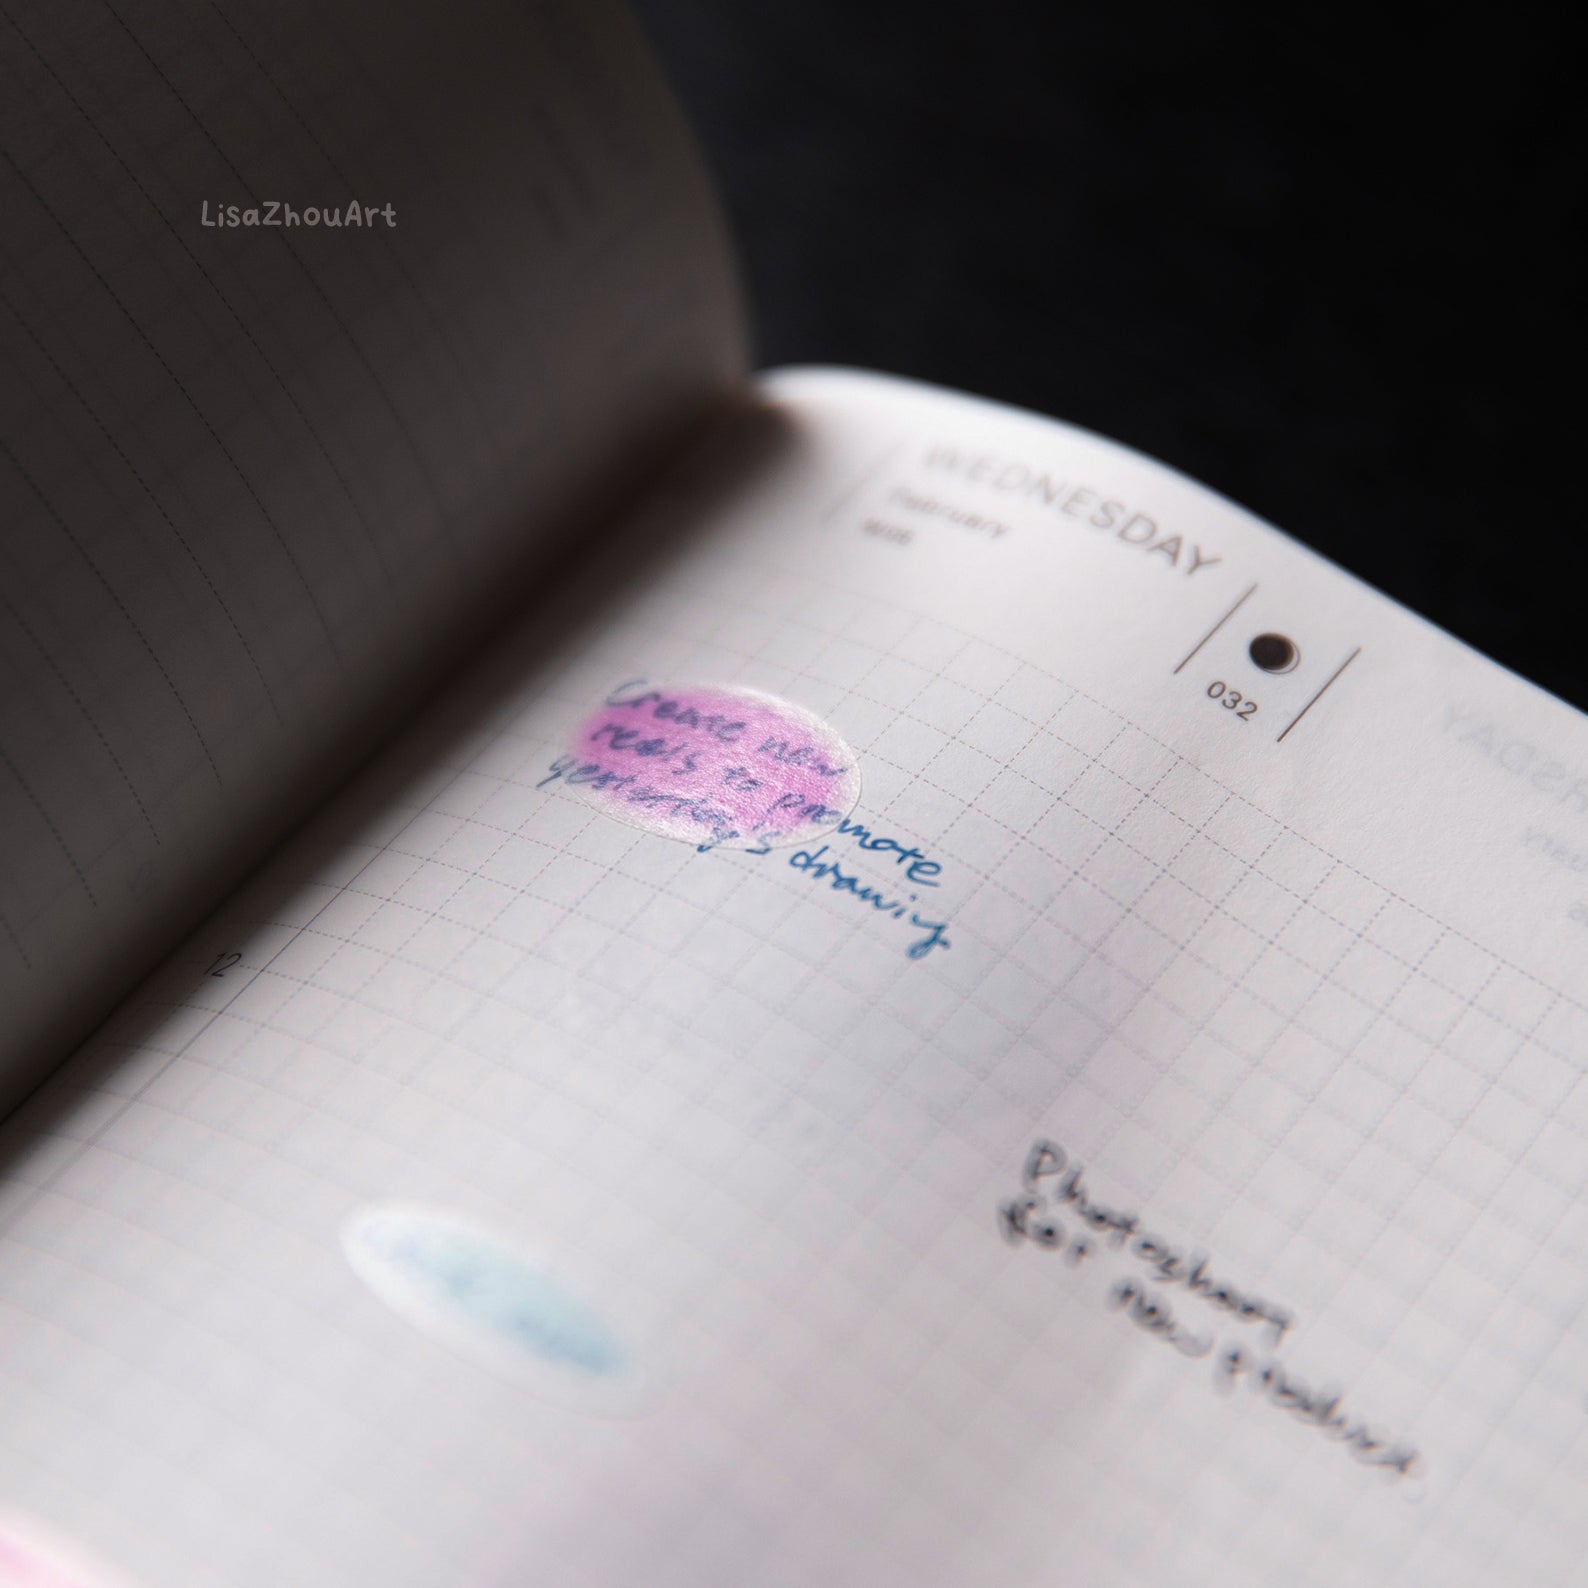 LisaZhouArt
WEDNESDAY
February
032
Create new
reels to promote
yesterday's drawing
12
for new product